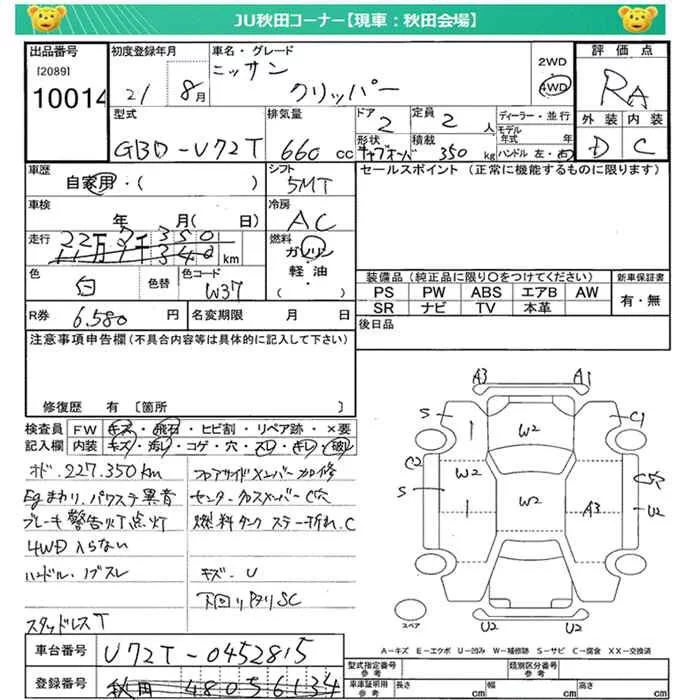 JU秋田コーナー【現車：秋田会場】
出品番号
[2089]
10014
初度登録年月
21 8月
車名・グレード
ニッサン
クリッパー
2WD
4WD
評価点
RA
外装 内装
D C
型式
GBD-U72T
排気量
660 cc
ドア
2
定員
2 人
ディーラー・並行
モデル年式 年
形状
キャブオーバ
積載
350 kg
ハンドル 左・右
車歴
自家用・( )
シフト
5MT
セールスポイント (正常に機能するものに限ります)
車検
年 月( 日)
冷房
AC
走行
22万7千350
km
燃料
ガソリン
軽油
( )
色
白
色替
色コード
W37
装備品 (純正品に限り○をつけてください)
新車保証書
PS PW ABS エアB AW
SR ナビ TV 本革
有・無
R券 6,580 円
名変期限 月 日
後日品
注意事項申告欄(不具合内容等は具体的に記入して下さい)
修復歴 有 [箇所 ]
検査員記入欄
FW キズ・飛石・ヒビ割・リペア跡・×要
内装 キズ・汚レ・コゲ・穴・スレ・キレ・破レ
オド.227.350km
Egまわり、パワステ異音
ブレーキ警告灯点灯
4WD入らない
ハンドル・ノブスレ
スタッドレスT
フロアサイドメンバー加修
センタークロスメンバーC穴
燃料タンクステー折れ.C
キズ・U
下回りサタリSC
A3 A1
S C1
W2
C2 W2 C穴
S W2 A3 U2
U2 U2
スペア
A－キズ E－エクボ U－凹み W－補修跡 S－サビ C－腐食 XX－交換済
車台番号 U72T-0452815
登録番号 秋田 4805 6134
型式指定番号 参考
類別区分番号 参考
車庫証明用 参考 長さ cm 幅 cm 高さ cm